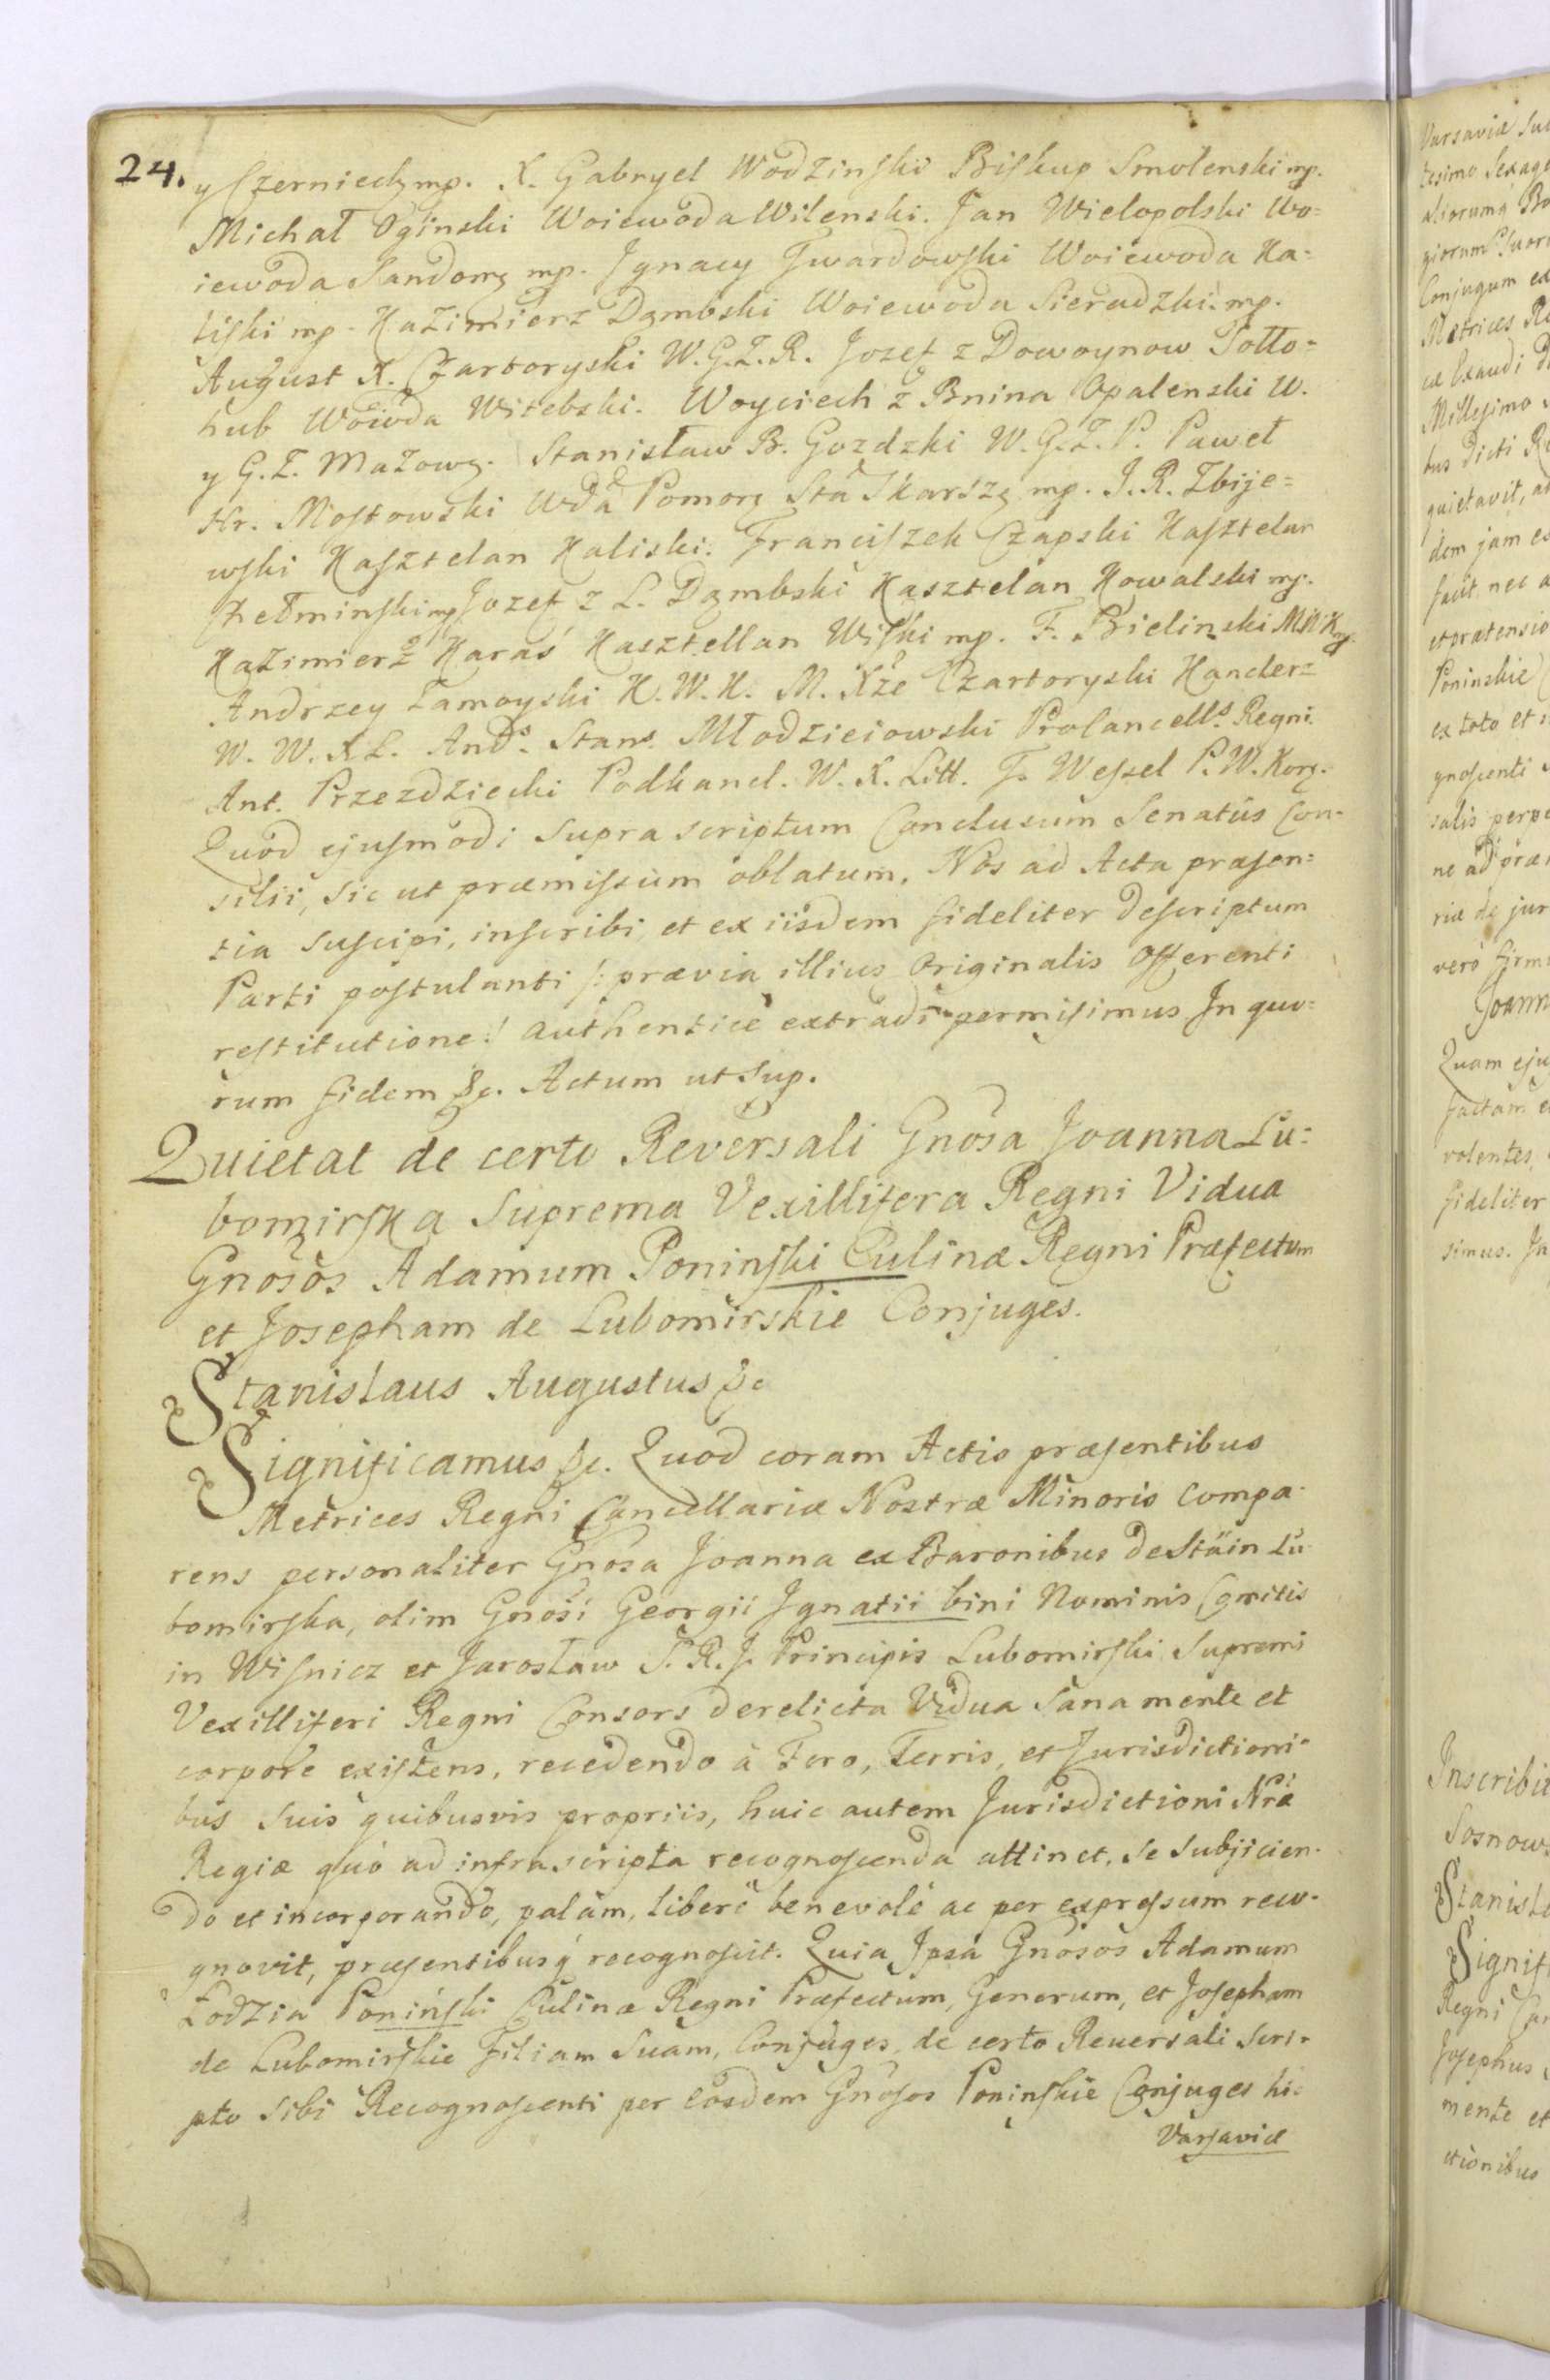 24.
y Czerniech mp. X. Gabryel Wodzinski Biskup Smolenski mp.
Michał Oginski Woiewoda Wilenski. Jan Wielopolski Wo=
iewoda Sandom: mp. Jgnacy Twardowski Woiewoda Ka=
liski mp. Kazimierz Dąmbski Woiewoda Sieradzki. mp.
August X. Czartoryski W. G. Z. R. Jozef z Dowoynow Sołło=
hub Woiwda Witebski. Woyciech z Bnina Opalenski W.
y G. Z. Mazow: Stanisław B. Gozdzki W. G. Z. P. Paweł
Hr. Mostowski Wda Pomor: Sta Skarsz: mp. J. R. Zbije=
wski Kasztelan Kaliski. Franciszek Czapski Kasztelan
Chełminski mp Jozef z L. Dąmbski Kasztelan Kowalski mp.
Kazimierz Karaś Kasztellan Wiski mp. F. Bielinski M N K mp.
Andrzey Zamoyski K. W. K. M. Xże Czartoryski Kanclerz
W. W. X L. Ands. Stans. Młodzieiowski Procancells. Regni
Ant. Przezdziecki Podkancl. W. X. Litt. T. Wessel P. W. Kor:
Quod ejusmodi supra scriptum Conclusum Senatûs Con=
silii, sic ut præmissum oblatum, Nos ad Acta præsen=
tia suscipi, inscribi, et ex iisdem fideliter descriptum
Parti postulanti /: prævia illius Originalis Offerenti
restitutione :/ authenticè extradi permisimus Jn quo=
rum fidem &c. Actum ut Sup.
Quietat de certo Reversali Gnosa Joanna Lu=
bomirska Suprema Vexillifera Regni Vidua
Gnosos Adamum Poninski Culinæ Regni Præfectum
et Josepham de Lubomirskie Conjuges.
Stanislaus Augustus &c
Significamus &c. Quod coram Actis præsentibus
Metrices Regni Cancellariæ Nostræ Minoris compa=
rens personaliter Gnosa Joanna ex Baronibus de Stäin Lu=
bomirska, olim Gnosi Georgii Jgnatii bini Nominis Comitis
in Wisnicz et Jarosław S. R. J. Principis Lubomirski Supremi
Vexilliferi Regni Consors derelicta Vidua sana mente et
corpore existens, recedendo à Foro, Terris, et Jurisdictioni=
bus suis quibusvis propriis, huic autem Jurisdictioni Nræ
Regiæ quò ad infrascripta recognoscenda attinet, se subjicien=
do et incorporando, palàm, liberè benevolè ac per expressum reco=
gnovit, præsentibusq́ recognoscit. Quia Jpsa Gnosos Adamum
Łodzia Poniński Culinæ Regni Præfectum, Generum, et Josepham
de Lubomirskie Filiam Suam, Conjuges, de certo Reversali Scri=
pto sibi Recognoscenti per eosdem Gnosos Poninskie Conjuges hi=
Varsaviæ